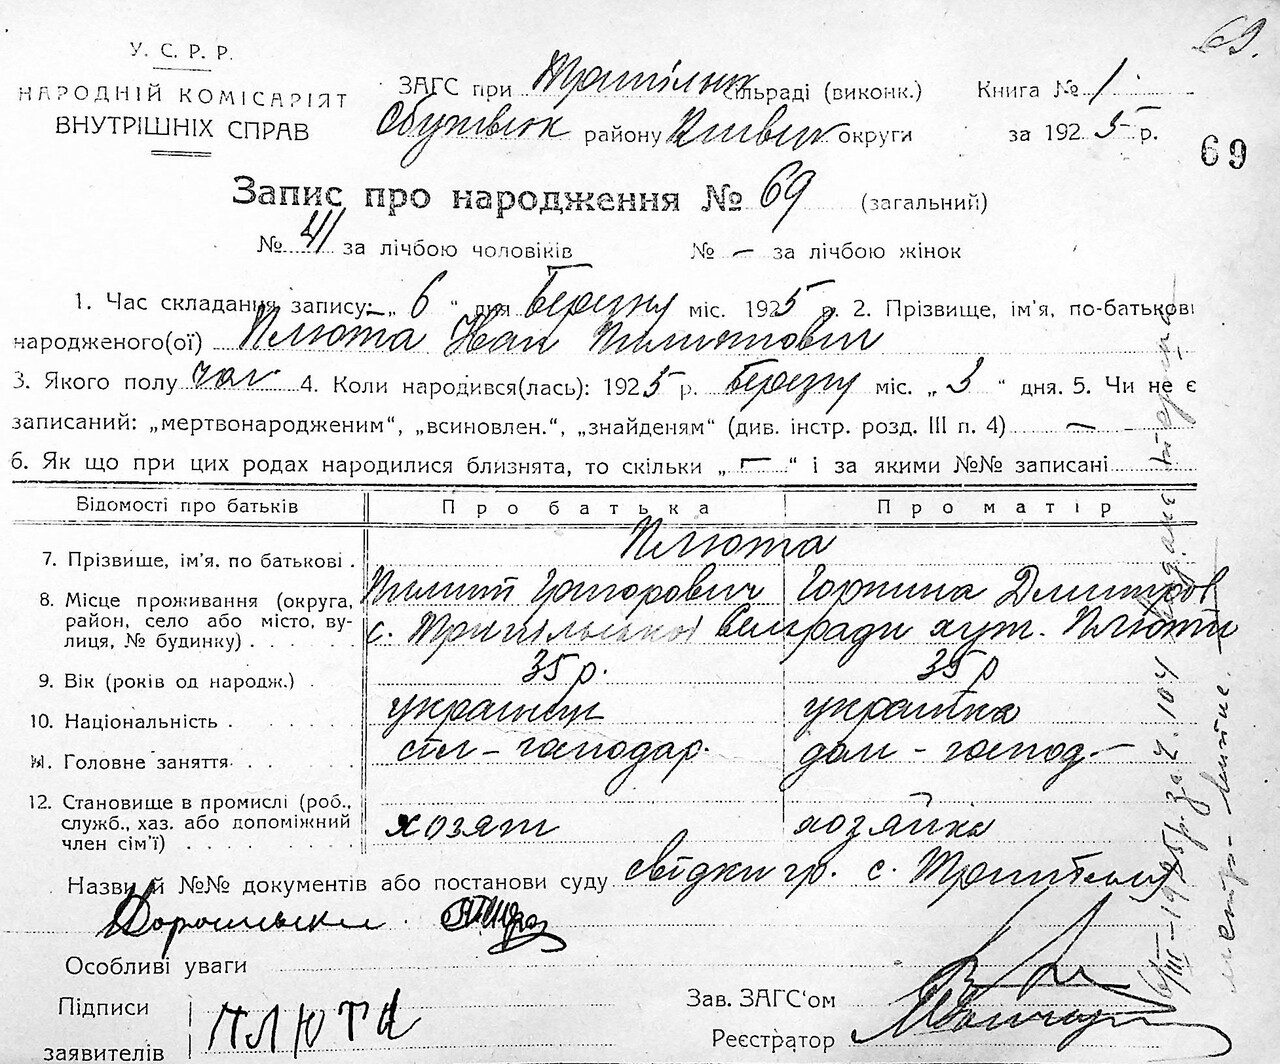 69.
У. С. Р. Р.
НАРОДНІЙ КОМІСАРІЯТ
ВНУТРІШНІХ СПРАВ
ЗАГС при Трипільськ сільраді (виконк.) Книга № 1
Обухівськ району Київськ округи за 1925 р.
69
Запис про народження № 69 (загальний)
№ 41 за лічбою чоловіків № — за лічбою жінок
1. Час складання запису: „ 6 “ дня березня міс. 1925 р. 2. Прізвище, ім'я, по-батькові
народженого(ої) Плюта Іван Пилипович
3. Якого полу чол 4. Коли народився(лась): 1925 р. березня міс. „ 3 “ дня. 5. Чи не є
записаний: „мертвонародженим“, „всиновлен.“, „знайденям“ (див. інстр. розд. III п. 4) —
6. Як що при цих родах народилися близнята, то скільки „ — “ і за якими №№ записані
Відомості про батьків Про батька Про матір
7. Прізвище, ім'я, по батькові . Плюта
Пилип Григорович Горпина Дмитров
8. Місце проживання (округа,
район, село або місто, ву-
лиця, № будинку) . . . . . .
с. Трипільської сельради хут. Плюти
9. Вік (років од народж.) . 35 р. 35 р
10. Національність . . . . . українец українка
11. Головне заняття . . . сіл – господар. дом – господ. –
12. Становище в промислі (роб.,
служб., хаз. або допоміжний
член сім'ї) . . . . . . . .
хозяїн хозяйка
Назви й №№ документів або постанови суду свідки гр. с. Трипілля
Особливі уваги
Підписи
заявителів
ПЛЮТА
Зав. ЗАГС'ом
Реєстратор
6/III–1925 р. за ч. 104 видане